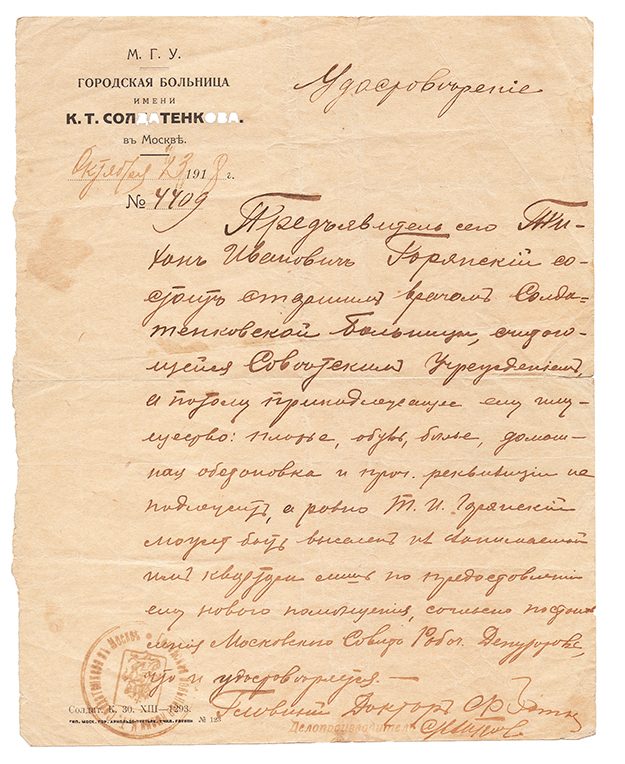 М. Г. У.
ГОРОДСКАЯ БОЛЬНИЦА
ИМЕНИ
К. Т. СОЛДАТЕНКОВА.
въ Москвѣ.
Октября 23 1918 г.
№ 4409
Удостовѣреніе
Предъявитель сего Ти-
хонъ Ивановичъ Горянскій со-
стоитъ старшимъ врачомъ Солда-
тенковской Больницы, считаю-
щейся Совѣтскимъ Учрежденіемъ,
а потому принадлежащее ему иму-
щество: платье, обувь, бѣлье, домаш-
няя обстановка и проч. реквизиціи не
подлежитъ, а равно Т. И. Горянскій
можетъ быть выселенъ изъ занимаемой
имъ квартиры лишь по предоставленіи
ему нового помѣщенія, согласно постанов
ленія Московского Совѣта Рабоч. Депутатовъ,
что и удостовѣряется.—
Главный Докторъ
Делопроизводитель
Солдат. К. 30. XIII—1293.
№ 123